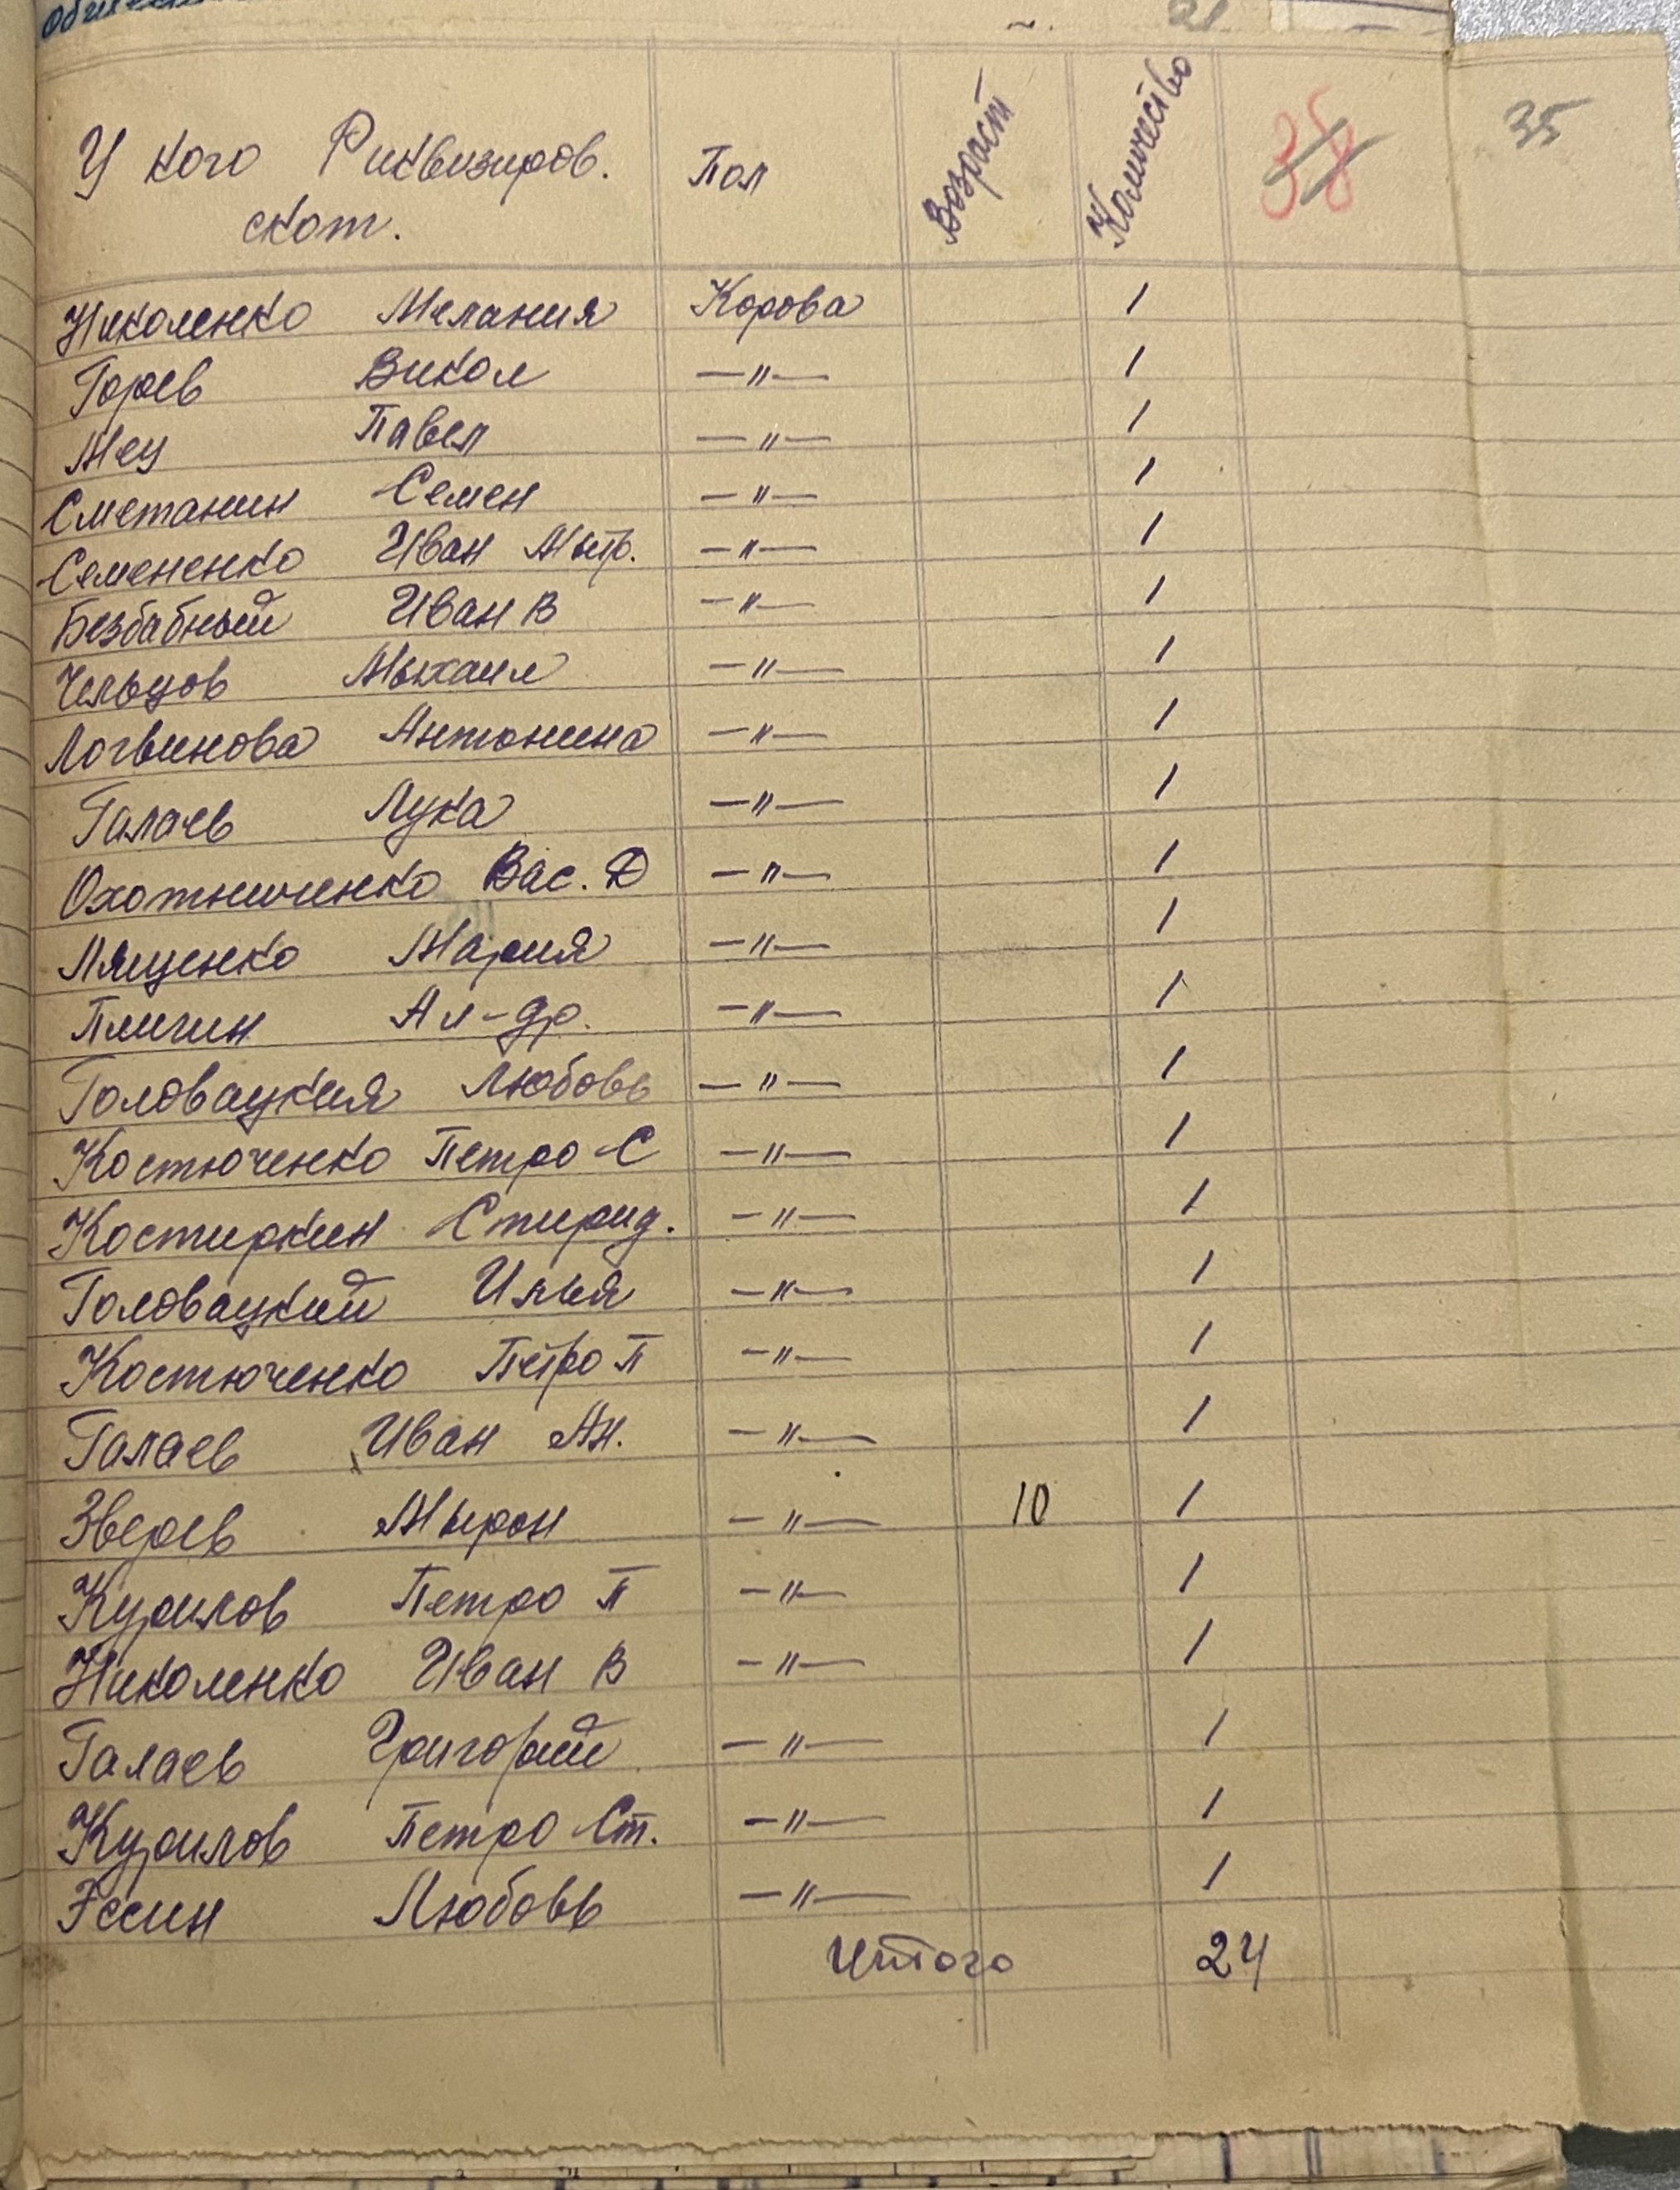 35
38
У кого Риквизиров. Пол Возраст Количество
скот.
Николенко Мелания Корова 1
Горев Викол —"— 1
Меу Павел —"— 1
Сметанин Семен —"— 1
Семененко Иван Мытр. —"— 1
Безбабный Иван В —"— 1
Чельцов Мыхаил —"— 1
Логвинова Антонина —"— 1
Галаев Лука —"— 1
Охотниченко Вас. Д —"— 1
Лященко Мария —"— 1
Пличин Ал-др. —"— 1
Головацкия Любовь —"— 1
Костюченко Петро С —"— 1
Костиркин Спирид. —"— 1
Головацкий Илья —"— 1
Костюченко Петро П —"— 1
Галаев Иван Ан. —"— 1
Зверев Мырон —"— 10 1
Курилов Петро П —"— 1
Николенко Иван В —"— 1
Галаев Григорий —"— 1
Курилов Петро Ст. —"— 1
Эссин Любовь —"— 1
Итого 24